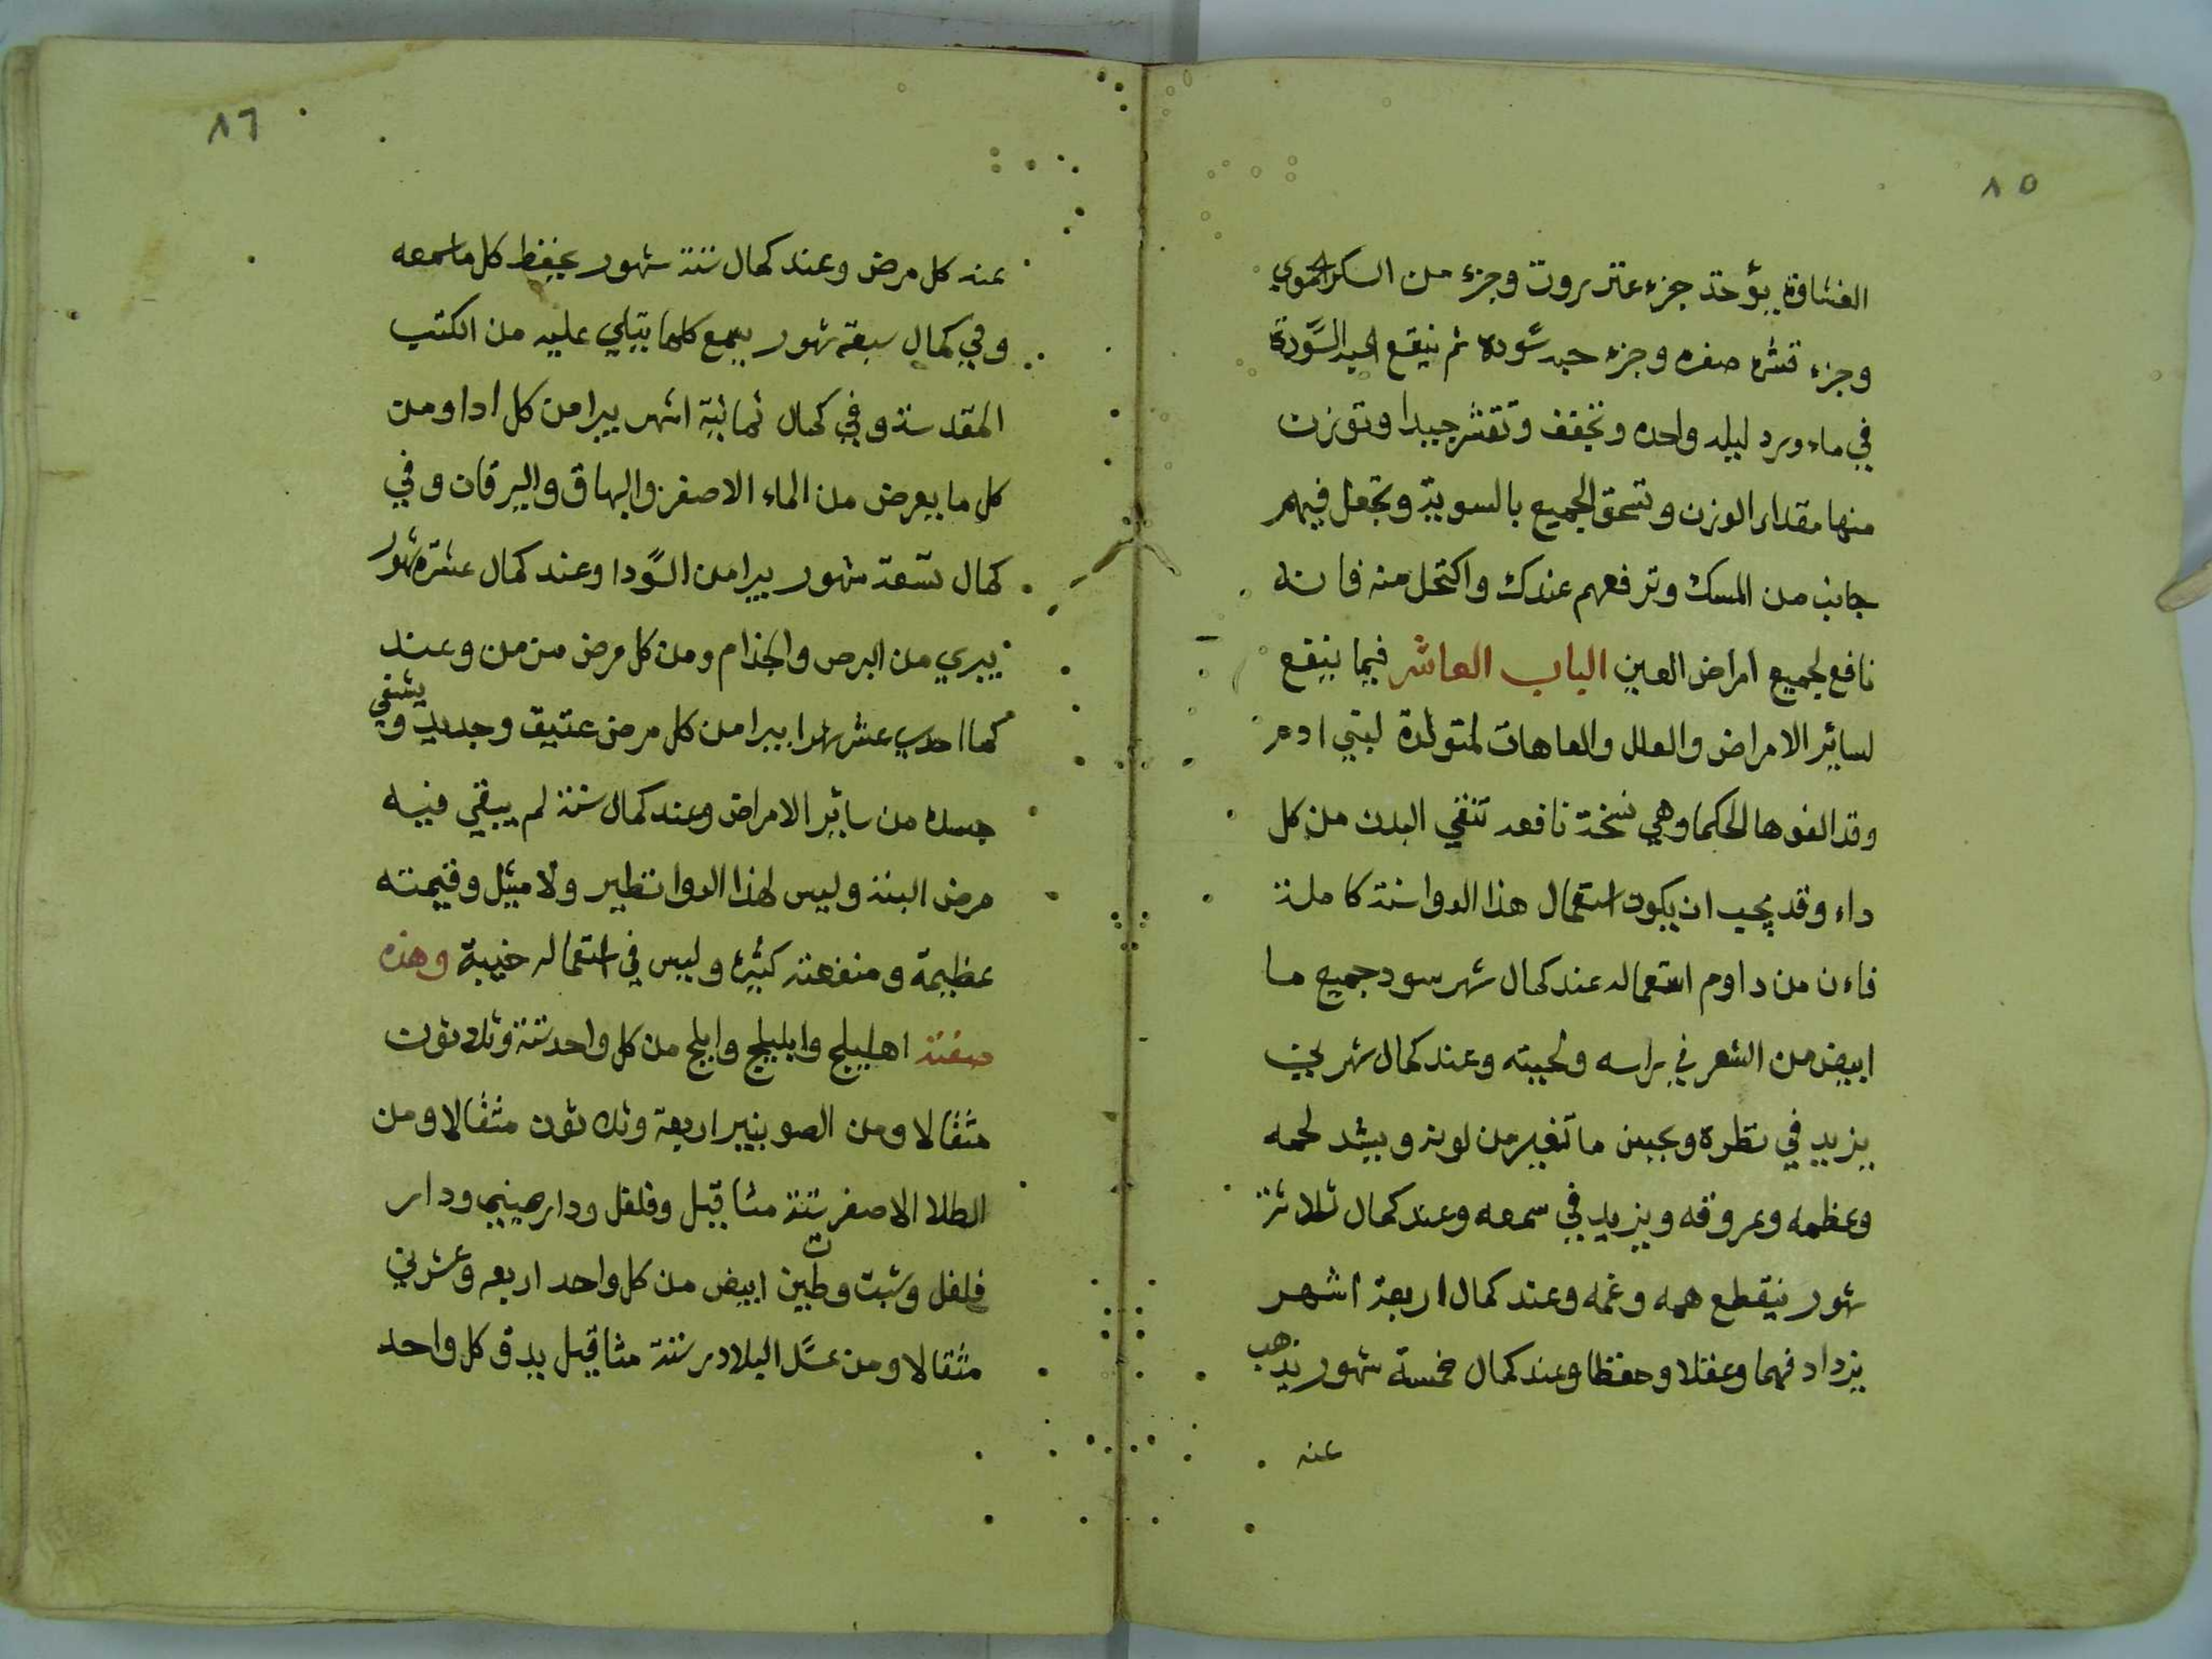 ٨٥
الغشاوة يؤخذ جزء عنزروت وجزء من السكر الحموي
وجزء قشره صفره وجزء حبه سوده ثم ينقع الحبه السودة
في ماء ورد ليله واحده وتجفف وتقشر جيدا وتوزن
منها مقدار الوزن وتسحق الجميع بالسوية وتجعل فيهم
جانب من المسك وترفعهم عندك واكتحل منه فانه
نافع لجميع امراض العين الباب العاشر فيما ينفع
لساير الامراض والعلل والعاهات لمتولدة لبني ادم
وقد الفوها الحكما وهي نسخة نافعه تنقي البدن من كل
داء وقد يجب ان يكون استعمال هذا الدوا سنة كاملة
فاءن من داوم استعماله عند كمال شهر سود جميع ما
ابيض من الشعر في راسه ولحيته وعند كمال شهرين
يزيد في نظره ويحسن ما تغير من لونه ويشد لحمه
وعظمه وعروقه ويزيد في سمعه وعند كمال ثلاثة
شهور ينقطع همه وغمه وعند كمال اربعة اشهر
يزداد فهما وعقلا وحفظا وعند كمال خمسة شهور يذهب
عنه
٨٦
عنه كل مرض وعند كمال ستة شهور يحفظ كل ما سمعه
وفي كمال سبعة شهور يسمع كلما يتلي عليه من الكتب
المقدسة وفي كمال ثمانية اشهر يبرا من كل اداومن
كل ما يعرض من الماء الاصفر والبهاق واليرقان وفي
كمال تسعة شهور يبرا من السودا وعند كمال عشرة شهور
يبري من البرص والجذام ومن كل مرض مزمن وعند
كما احدي عشر شهرا يبرا من كل مرض عتيق وجديد ويشفي
جسده من ساير الامراض وعند كمال سنة لم يبقي فيه
مرض البتة وليس لهذا الدوا نظير ولا مثيل وقيمته
عظيمة ومنفعته كثيره وليس في استعماله خيبة وهذه
صفته اهليلج وابليلج واملج من كل واحد ستة وثلاثون
مثقالا ومن الصوبنيبر اربعة وثلاثون مثقالا ومن
الطلا الاصفر ستة مثاقيل وفلفل ودار صيني ودار
فلفل وشبت وطين ابيض من كل واحد اربعه وعشرين
مثقالا ومن عسل البلادر ستة مثاقيل يدق كل واحد